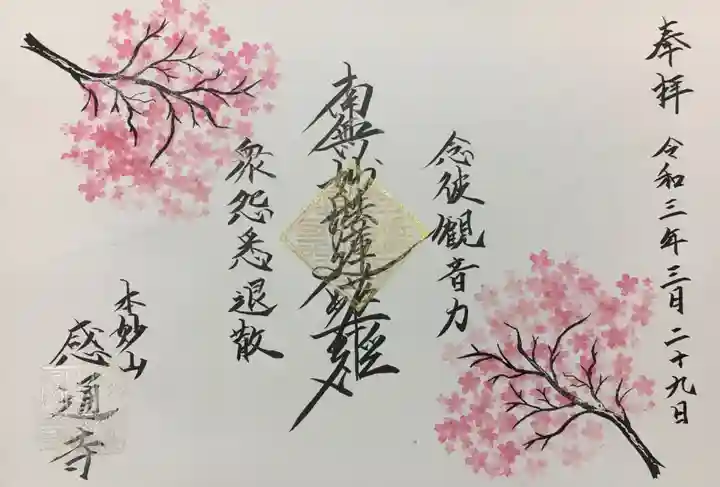 奉拝 令和三年三月二十九日
念彼観音力
南無妙
衆怨悉退散
本妙山
感通寺